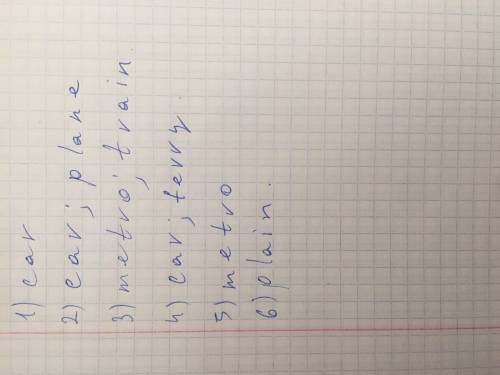 1) car
2) car; plane
3) metro; train.
4) car; ferry.
5) metro
6) plain.